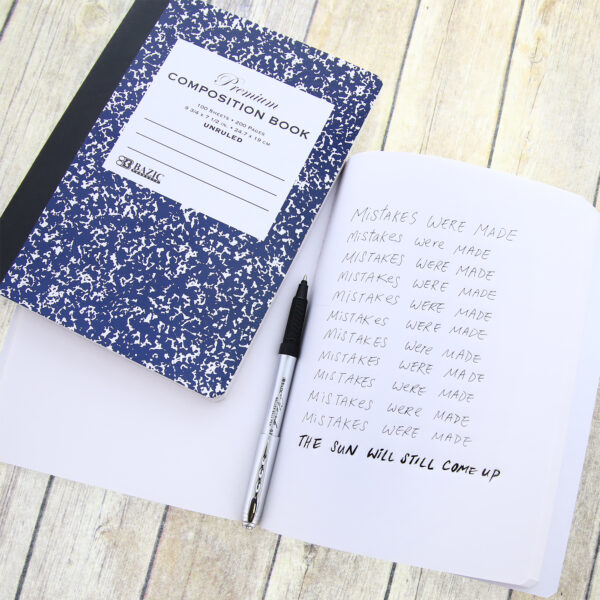 Premium
COMPOSITION BOOK
100 SHEETS • 200 PAGES
9 3/4 x 7 1/2 IN. • 24.7 x 19 CM
UNRULED
BAZIC
MISTAKES WERE MADE
MISTAKES WERE MADE
MISTAKES WERE MADE
MISTAKES WERE MADE
MISTAKES WERE MADE
MISTAKES WERE MADE
MISTAKES WERE MADE
MISTAKES WERE MADE
MISTAKES WERE MADE
MISTAKES WERE MADE
MISTAKES WERE MADE
THE SUN WILL STILL COME UP